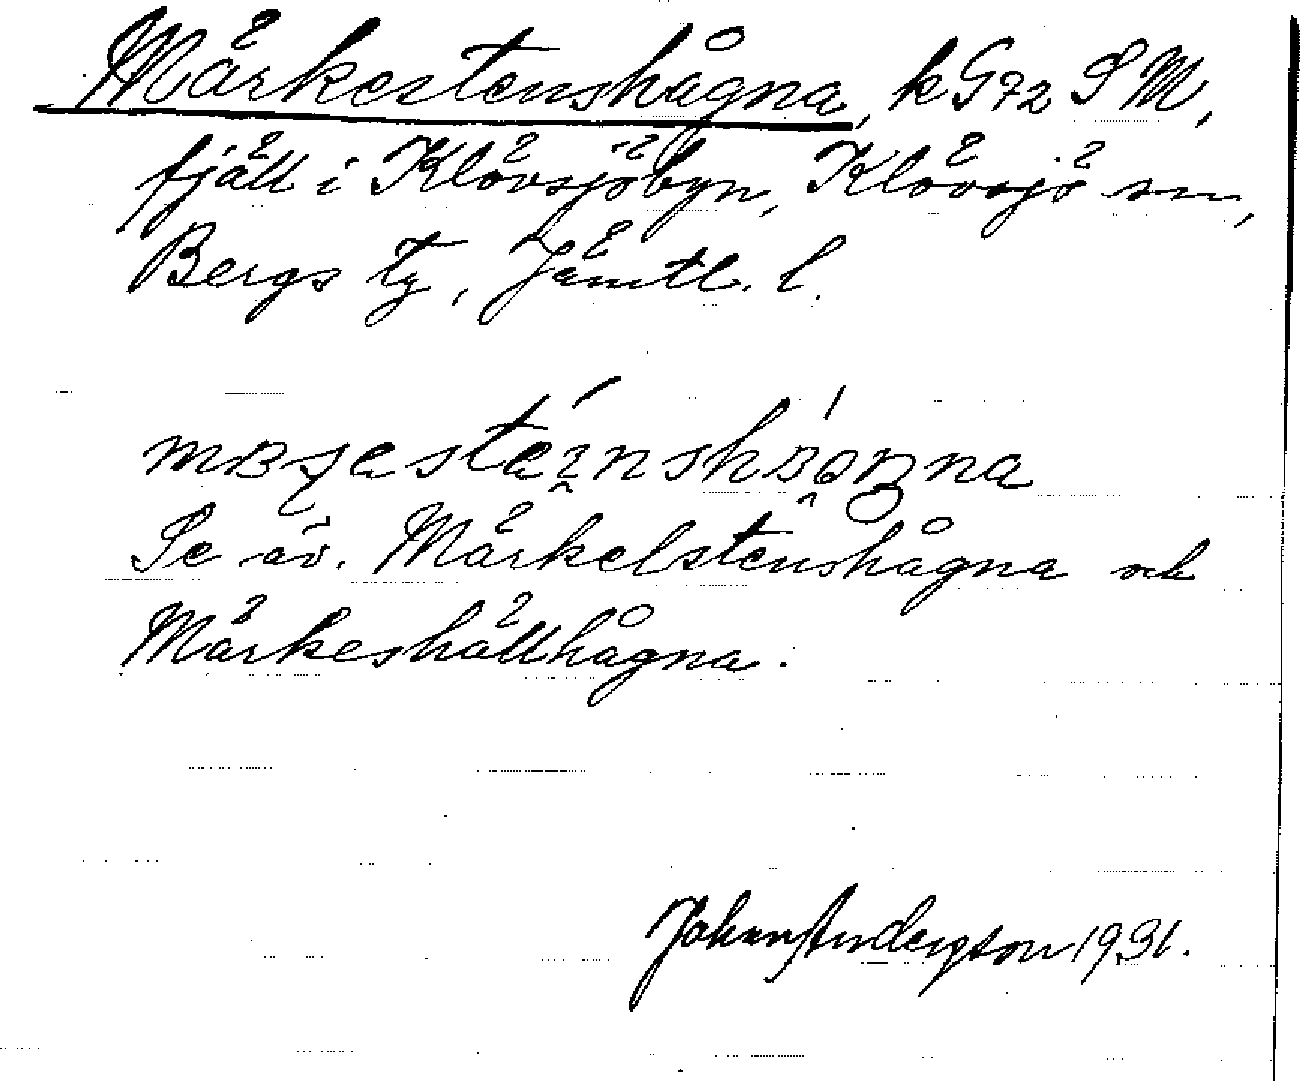 Märkestenshågna, kG72 SM,
fjäll i Klövsjöbyn, Klövsjö sn,
Bergs tg, Jämtl. l.
Se äv. Märkelstenshågna och
Märkeshällhågna.
Johan Anderson 1931.